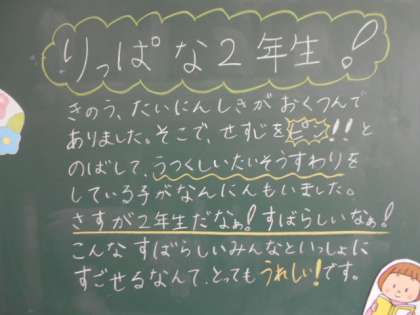 りっぱな2年生!
きのう、たいにんしきがおくつんで
ありました。そこで、せすじをピン!!と
のばして、うつくしいたいそうすわりを
している子がなんにんもいました。
さすが2年生だなぁ!すばらしいなぁ!
こんなすばらしいみんなといっしょに
すごせるなんて、とってもうれしい!です。